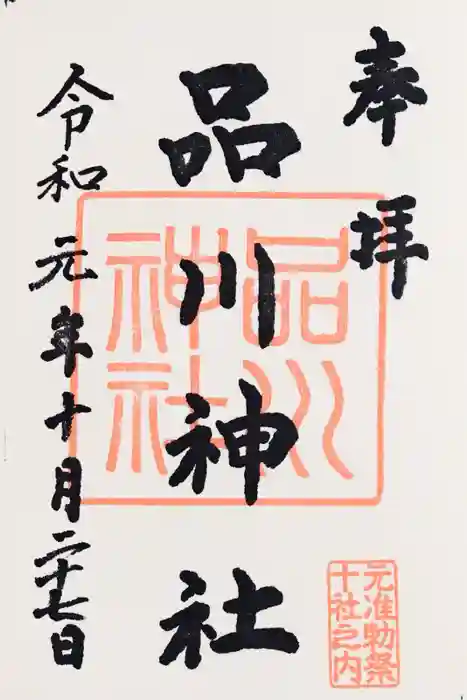 奉拝
品川神社
令和元年十月二十七日
品川神社
元准勅祭
十社之内